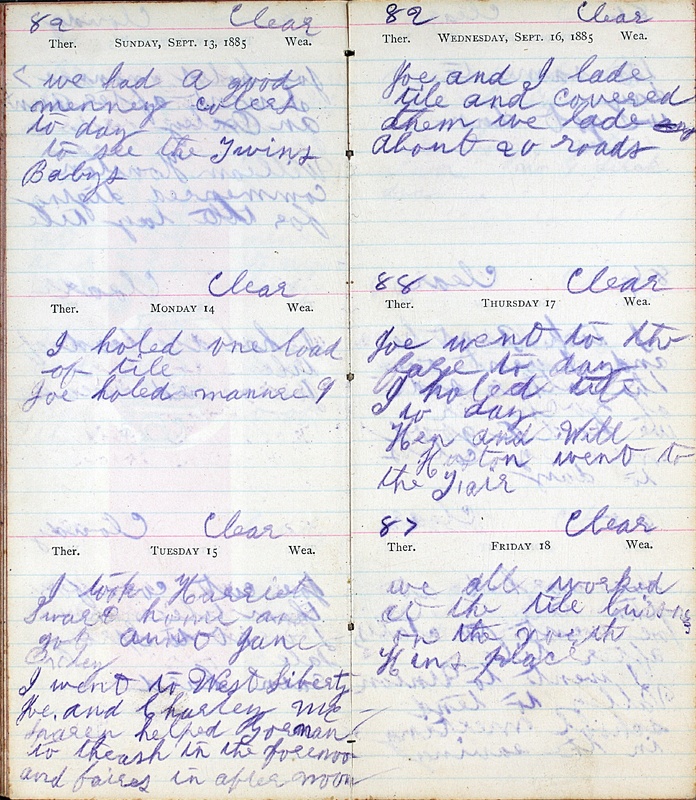 89 Clear
Ther. SUNDAY, SEPT. 13, 1885 Wea.
we had a good
menney colers
to day
to see the Twins
Babys
Clear
Ther. MONDAY 14 Wea.
I holed one load
of tile
Joe holed mannee 9
Clear
Ther. TUESDAY 15 Wea.
I took Harriet
Sward home and
got aunt Jane
I went to West Liberty
Joe and Charley Mc
helped Gorman
to theash in the forenoon
and in after noon
89 Clear
Ther. WEDNESDAY, SEPT. 16, 1885 Wea.
Joe and I lade
tile and covered
them we lade
about 20 roads
88 Clear
Ther. THURSDAY 17 Wea.
Joe went to the
to day
I holed tile
to day
Hen and Will
Hoston went to
the Fair
87 Clear
Ther. FRIDAY 18 Wea.
we all worked
at the tile
on the
Hens place